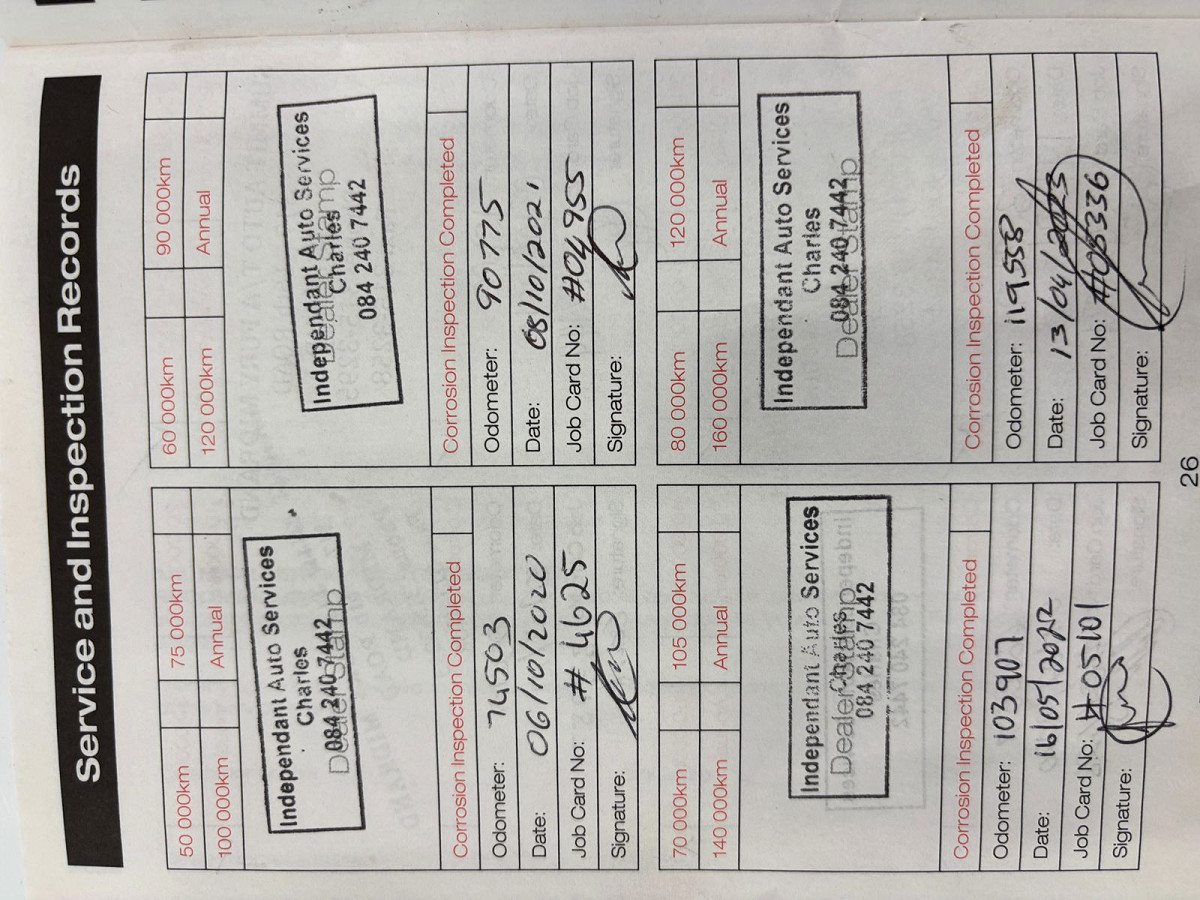 Service and Inspection Records
50 000km 75 000km
100 000km Annual
Independant Auto Services
Charles
084 240 7442
Dealer Stamp
Corrosion Inspection Completed
Odometer: 74503
Date: 06/10/2020
Job Card No: # 4625
Signature:
60 000km 90 000km
120 000km Annual
Independant Auto Services
Dealer Stamp
Charles
084 240 7442
Corrosion Inspection Completed
Odometer: 90775
Date: 08/10/2021
Job Card No: #04955
Signature:
70 000km 105 000km
140 000km Annual
Independant Auto Services
Dealer Stamp
Charles
084 240 7442
Corrosion Inspection Completed
Odometer: 103907
Date: 16/05/2022
Job Card No: # 05101
Signature:
80 000km 120 000km
160 000km Annual
Independant Auto Services
Charles
084 240 7442
Dealer Stamp
Corrosion Inspection Completed
Odometer: 119558
Date: 13/04/2023
Job Card No: #05336
Signature:
26